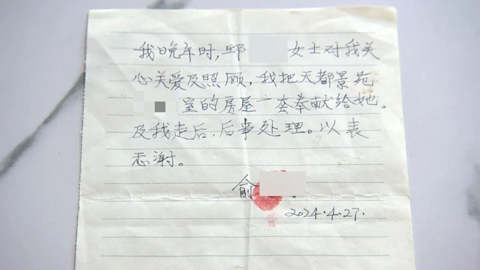 我晚年时，邱 女士对我关
心关爱及照顾，我把天都景苑
室的房屋一套奉献给她。
及我走后，后事处理。以表
恣谢。
俞
2024.4.27.